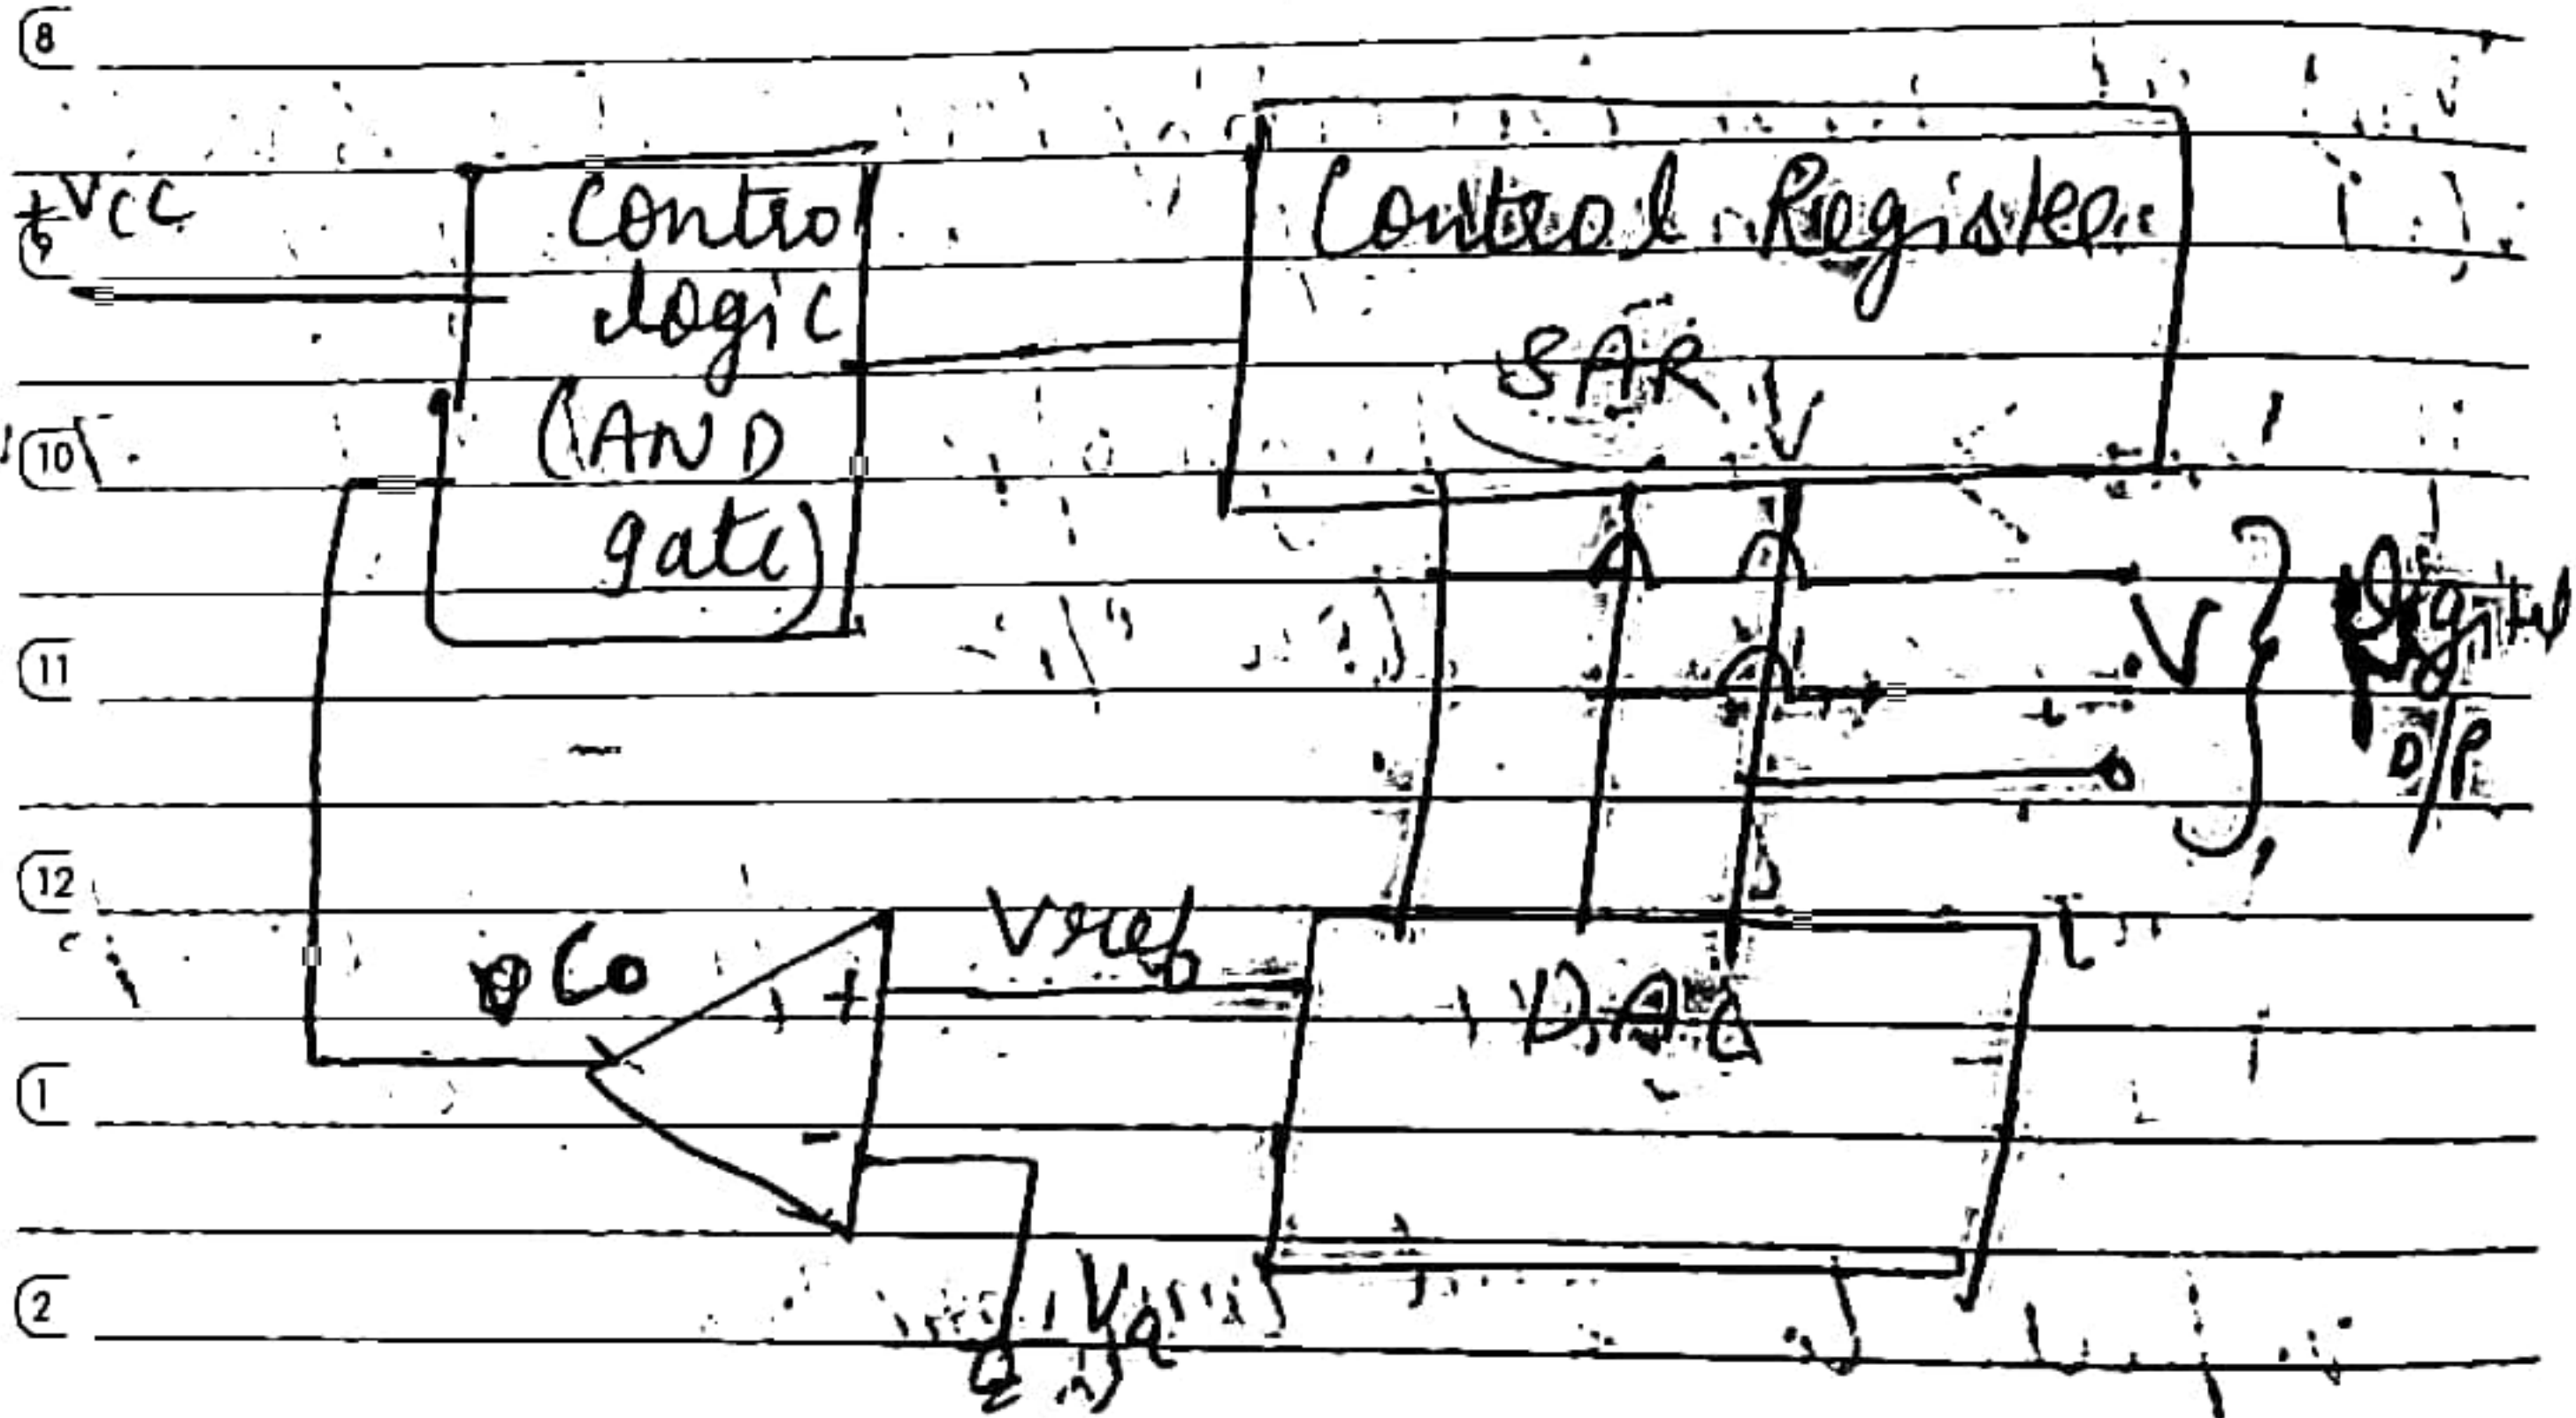 8
+VCC
9
Control
logic
(AND
gate)
Control Register
SAR
10
11
Digital
O/P
12
Co
+
Vref
DAC
1
-
Va
2